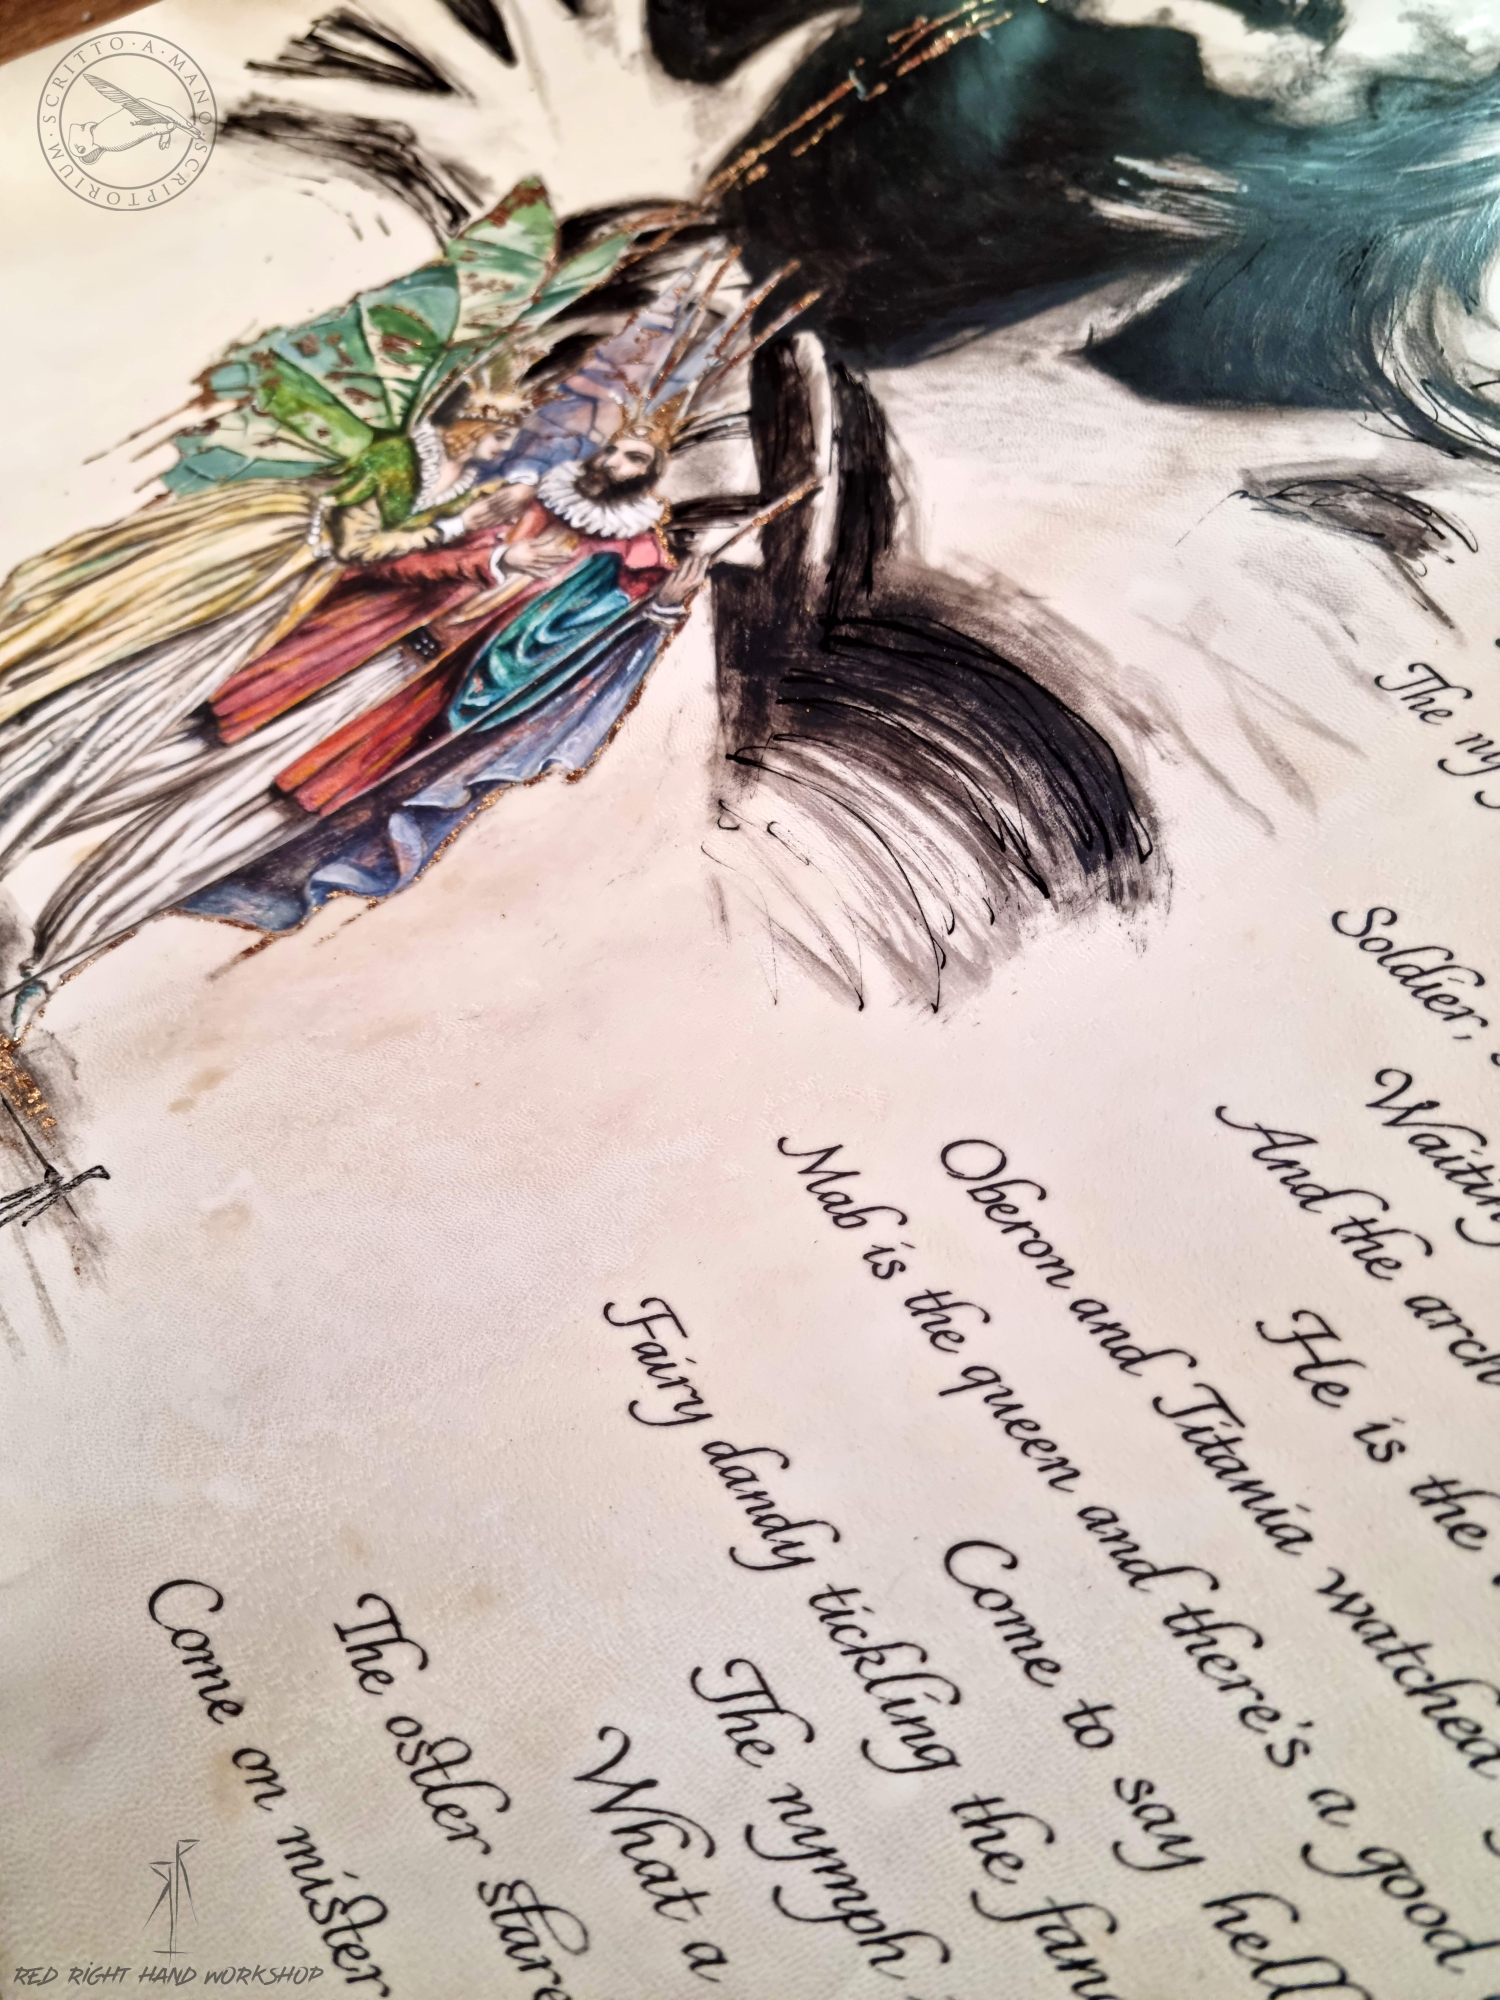 SCRITTO · A · MANO · SCRIPTORIUM ·
The ny
Soldier,
Waiting
And the arch
He is the
Oberon and Titania watched
Mab is the queen and there's a good
Come to say hell
Fairy dandy tickling the fan
The nymph
What a
The ostler stare
Come on mister
RED RIGHT HAND WORKSHOP